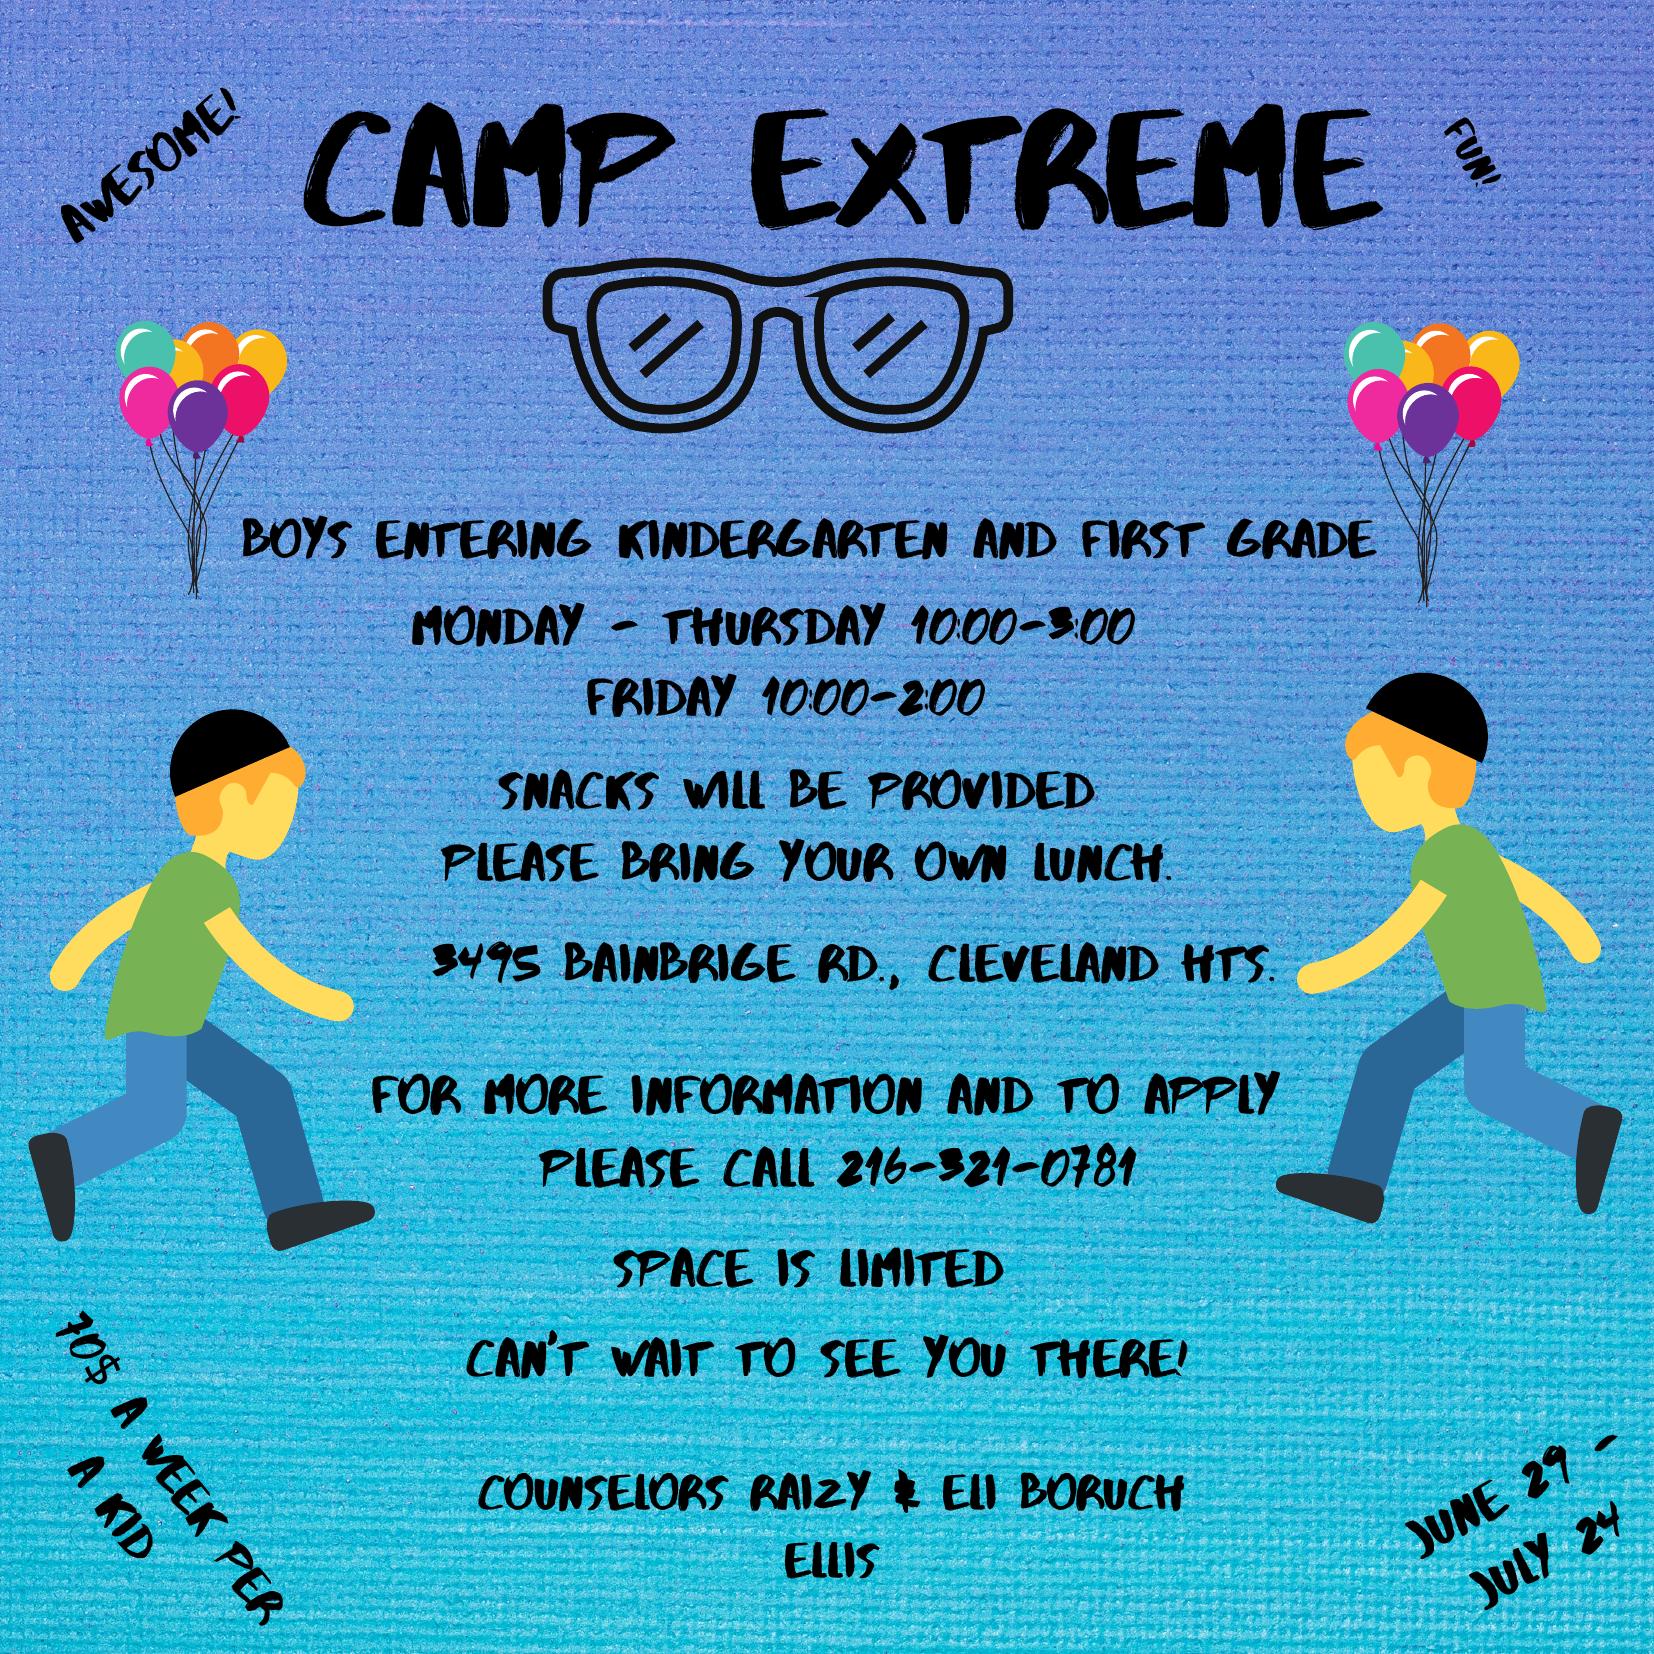 AWESOME!
CAMP EXTREME
FUN!
BOYS ENTERING KINDERGARTEN AND FIRST GRADE
MONDAY - THURSDAY 10:00-3:00
FRIDAY 10:00-2:00
SNACKS WILL BE PROVIDED
PLEASE BRING YOUR OWN LUNCH.
3495 BAINBRIGE RD., CLEVELAND HTS.
FOR MORE INFORMATION AND TO APPLY
PLEASE CALL 216-321-0781
SPACE IS LIMITED
CAN'T WAIT TO SEE YOU THERE!
70$ A WEEK PER
A KID
COUNSELORS RAIZY & ELI BORUCH
ELLIS
JUNE 29 -
JULY 24